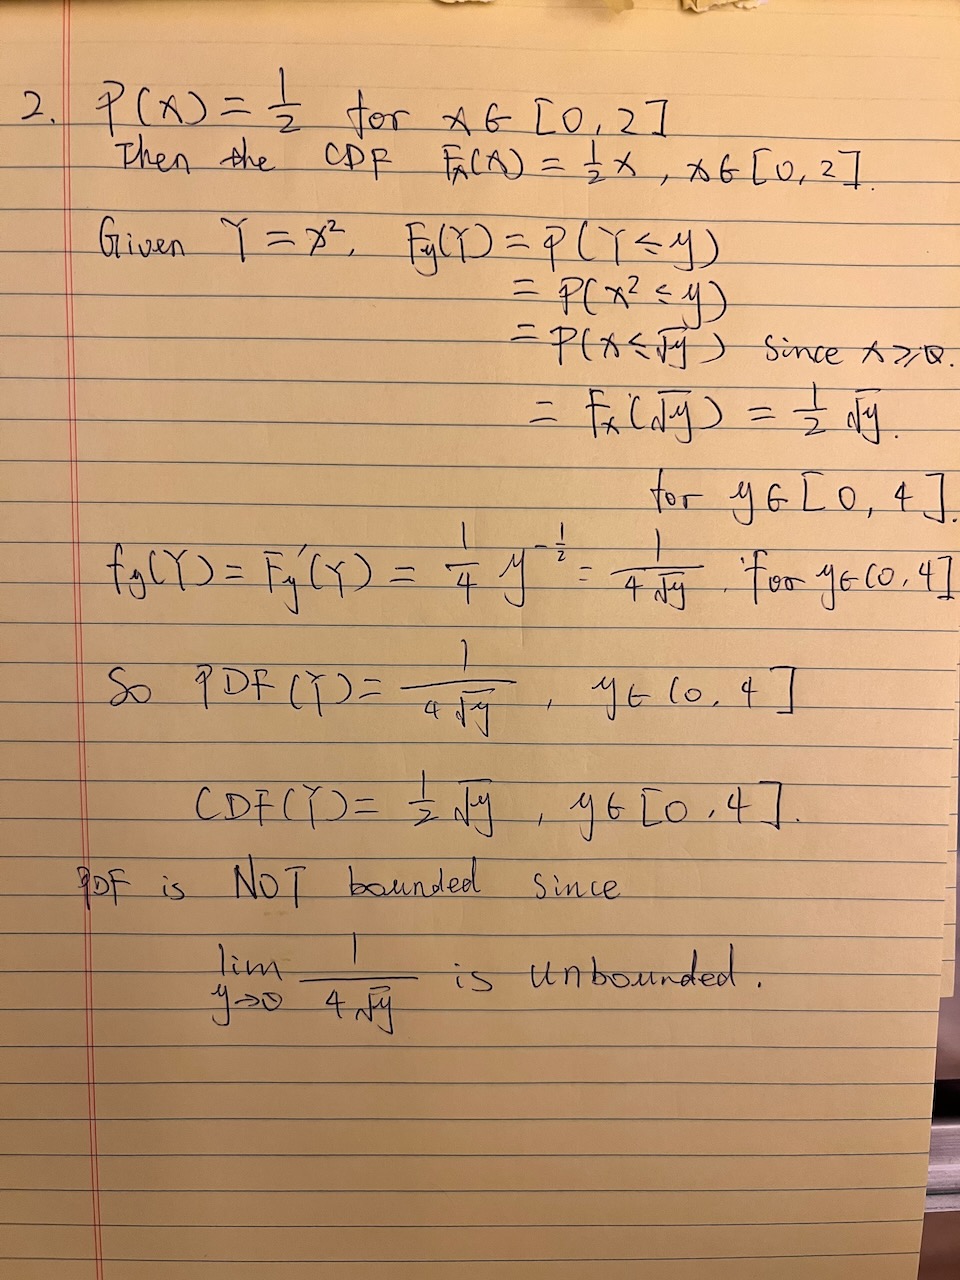 2. P(x) = 1/2 for x ∈ [0, 2]
Then the CDF Fx(x) = 1/2 x, x ∈ [0, 2].
Given Y = x², Fy(Y) = P(Y ≤ y)
= P(x² ≤ y)
= P(x ≤ √y) since x ≥ 0.
= Fx(√y) = 1/2 √y.
for y ∈ [0, 4].
fy(Y) = Fy'(Y) = 1/4 y^(-1/2) = 1/(4√y). for y ∈ (0, 4]
So PDF(Y) = 1/(4√y), y ∈ (0, 4]
CDF(Y) = 1/2 √y, y ∈ [0, 4].
PDF is NOT bounded since
lim y→0 1/(4√y) is unbounded.